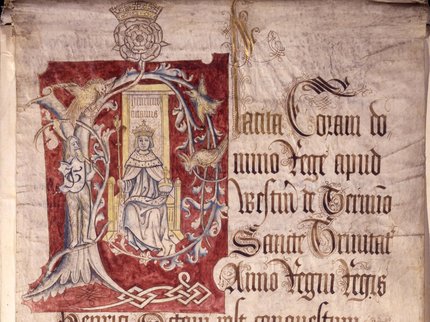 Placita Coram do
mino Rege apud
Westm̃ de Termino
Sancte Trinitatis
Anno Regni Regis
Henrici Octavi post conquestum